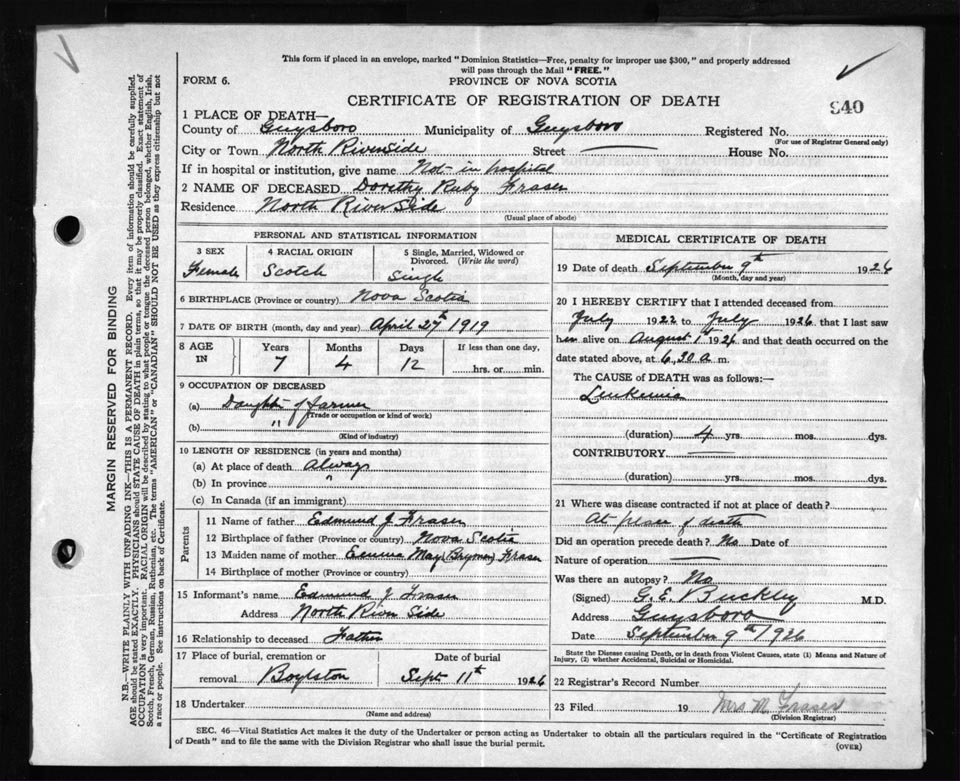 This form if placed in an envelope, marked "Dominion Statistics—Free, penalty for improper use $300," and properly addressed
will pass through the Mail "FREE."
FORM 6.
PROVINCE OF NOVA SCOTIA
CERTIFICATE OF REGISTRATION OF DEATH
940
1 PLACE OF DEATH—
County of Guysboro Municipality of Guysboro Registered No.
(For use of Registrar General only)
City or Town North Riverside Street — House No.
If in hospital or institution, give name Not in hospital
2 NAME OF DECEASED Dorothy Ruby Fraser
Residence North River Side
(Usual place of abode)
PERSONAL AND STATISTICAL INFORMATION
3 SEX
Female
4 RACIAL ORIGIN
Scotch
5 Single, Married, Widowed or
Divorced. (Write the word)
Single
6 BIRTHPLACE (Province or country) Nova Scotia
7 DATE OF BIRTH (month, day and year) April 27th 1919
8 AGE
IN
Years
7
Months
4
Days
12
If less than one day,
hrs. or min.
9 OCCUPATION OF DECEASED
(a) Daughter of farmer
(Trade or occupation or kind of work)
(b) "
(Kind of industry)
10 LENGTH OF RESIDENCE (in years and months)
(a) At place of death Always
(b) In province "
(c) In Canada (if an immigrant)
Parents
11 Name of father Edmund J Fraser
12 Birthplace of father (Province or country) Nova Scotia
13 Maiden name of mother Emma May (Bryman) Fraser
14 Birthplace of mother (Province or country)
15 Informant's name Edmund J Fraser
Address North River Side
16 Relationship to deceased Father
17 Place of burial, cremation or
removal Boylston
Date of burial
Sept 11th 1926
18 Undertaker
(Name and address)
MEDICAL CERTIFICATE OF DEATH
19 Date of death September 9th 1926
(Month, day and year)
20 I HEREBY CERTIFY that I attended deceased from
July 1922 to July 1926 that I last saw
her alive on August 1st 1926 and that death occurred on the
date stated above, at 6.20 a m.
The CAUSE of DEATH was as follows:—
Leukemia
(duration) 4 yrs. mos. dys.
CONTRIBUTORY —
(duration) yrs. mos. dys.
21 Where was disease contracted if not at place of death?
At place of death
Did an operation precede death? No Date of
Nature of operation —
Was there an autopsy? No
(Signed) G. E. Buckley M.D.
Address Guysboro
Date September 9th 1926
State the Disease causing Death, or in death from Violent Causes, state (1) Means and Nature of
Injury, (2) whether Accidental, Suicidal or Homicidal.
22 Registrar's Record Number
23 Filed 19 Mrs M. Fraser
(Division Registrar)
SEC. 46—Vital Statistics Act makes it the duty of the Undertaker or person acting as Undertaker to obtain all the particulars required in the "Certificate of Registration
of Death" and to file the same with the Division Registrar who shall issue the burial permit.
(OVER)
MARGIN RESERVED FOR BINDING
N.B.—WRITE PLAINLY WITH UNFADING INK—THIS IS A PERMANENT RECORD. Every item of information should be carefully supplied.
AGE should be stated EXACTLY. PHYSICIANS should STATE CAUSE OF DEATH in plain terms, so that it may be properly classified. Exact statement of
OCCUPATION is very important. RACIAL ORIGIN will be described by stating to what people or tongue the deceased person belonged, whether English, Irish,
Scotch, French, German, Russian, Ruthenian, etc. The terms "AMERICAN" or "CANADIAN" SHOULD NOT BE USED as they express citizenship but not
a race or people. See instructions on back of Certificate.